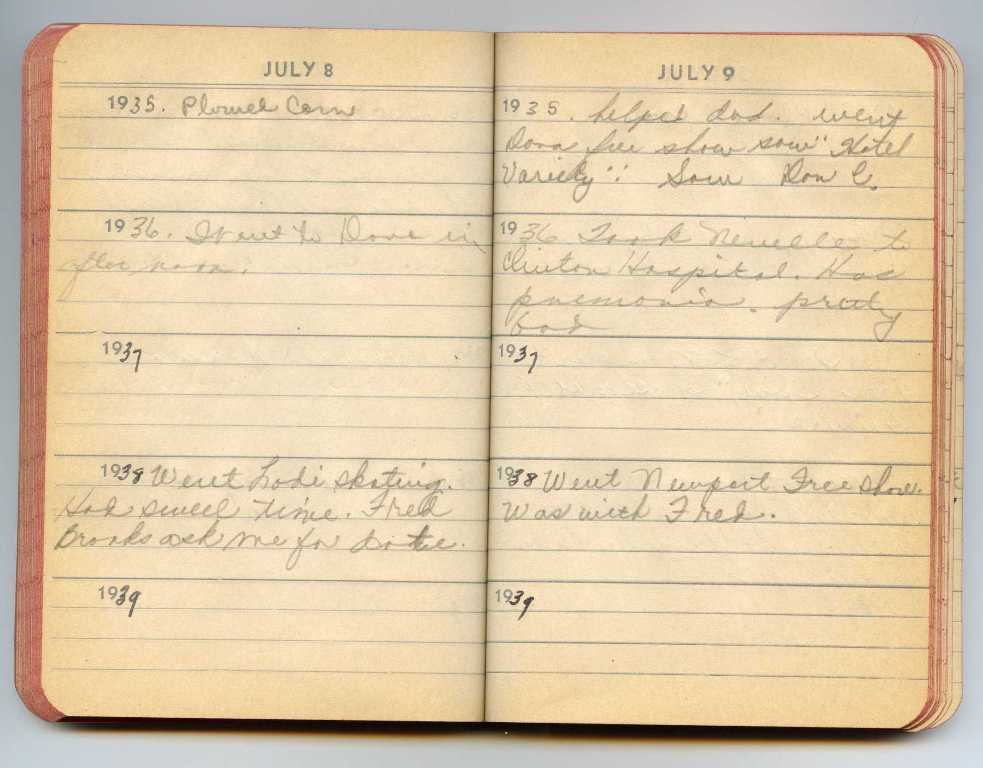 JULY 8
1935. Plowed Corn
1936. Went to Dana in
after noon.
1937
1938 Went Lodi skating.
Had sweel time. Fred
Brooks ask me for date.
1939
JULY 9
1935. helped dad. went
Dana free show saw "Hotel
Variety". Saw Don C.
1936 Took Nevelle to
Clinton Hospital. Has
pnemonia. pretty
bad
1937
1938 Went Newport Free show.
Was with Fred.
1939